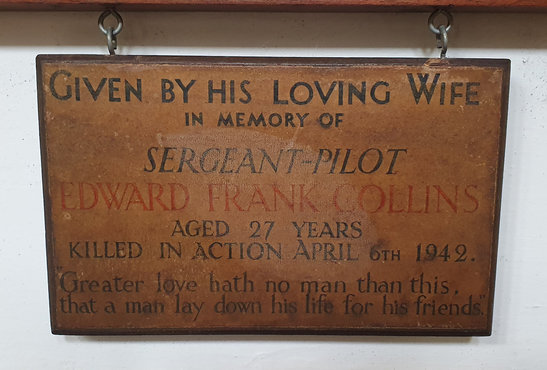 GIVEN BY HIS LOVING WIFE
IN MEMORY OF
SERGEANT-PILOT
EDWARD FRANK COLLINS
AGED 27 YEARS
KILLED IN ACTION APRIL 6TH 1942.
"Greater love hath no man than this,
that a man lay down his life for his friends."